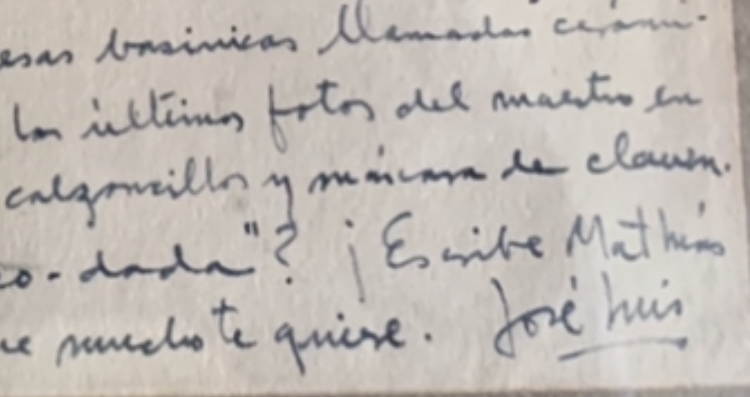 esas basinicas llamadas cerámi-
las últimas fotos del maestro en
calzoncillos y máscara de clown.
o-dada"? ¡Escribe Mathias
ue mucho te quiere. José Luis